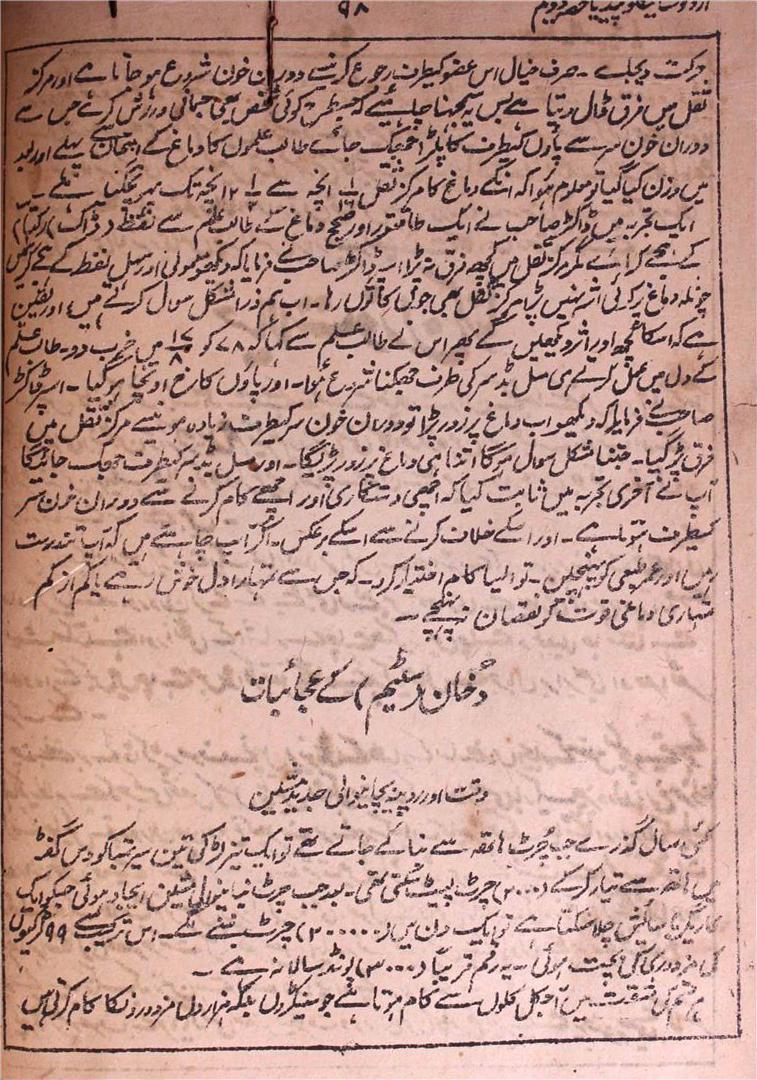 ۹۸
حرکت دیجلے ۔ صرف خیال اس عضو کیطرف رجوع کرنیسے دوران خون شروع ہو جاتا ہے اور مرکز
ثقل میں فرق ڈال دیتا ہے بس یہ سمجھنا چاہیے کہ جسطرح کوئی شخص بھی جسمانی ورزش کرے جس سے
دوران خون سر سے پاؤں کیطرف کا پلڑا جھک جائے طالب علموں کا دماغ کے امتحان سے پہلے اور بعد
میں وزن کیا گیا تو معلوم ہوا کہ انکے دماغ کا مرکز ثقل ۱/۲ انچہ سے ۱/۲ ۲ انچہ تک بہر جھکنا نکلے ۔
ایک تجربہ میں ڈاکٹر صاحب نے ایک طاقتور اور صحیح دماغ کے طالب علم سے لفظ (ڈاک) (رکتا)
کے ہجے کرائے مگر مرکز ثقل میں کچھ فرق نہ پڑا اسپر ڈاکٹر صاحب نے فرمایا کہ دیکھو معمولی اور سہل لفظ کے ہجے کرنیمیں
چونکہ دماغ پر کوئی اثر نہیں پڑا مرکز ثقل بھی جوں کا توں رہا ۔ اب ہم ذرا مشکل سوال کرتے ہیں اور یقین
ہے کہ اسکا کچھ اور اثر دیکھیں گے پھر اس نے طالب علم سے کہا کہ ۷۸ کو ۱۷/۸ میں ضرب دو ۔ طالب علم
کے دل میں عمل کرتے ہی سل بڈ سر کی طرف جھکنا شروع ہوا ۔ اور پاؤں کا رخ اونچا ہو گیا ۔ اسپر ڈاکٹر
صاحب نے فرمایا کہ دیکھو اب دماغ پر زور پڑا تو دوران خون سر کیطرف زیادہ ہونیسے مرکز ثقل میں
فرق پڑ گیا ۔ جتنا مشکل سوال ہوگا اتنا ہی دماغ پر زور پڑیگا ۔ اور سل بڈ سر کیطرف جھک جائیگا
آپ نے آخری تجربہ میں ثابت کیا کہ اچھی دستکاری اور اچھے کام کرنے سے دوران خون سر
کیطرف ہوتا ہے ۔ اور اسکے خلاف کرنے سے اسکے برعکس ۔ اگر آپ چاہتے ہیں کہ آپ تندرست
رہیں اور عمر طبعی کو پہنچیں ۔ تو ایسا کام اختیار کرو ۔ کہ جس سے تمہارا دل خوش رہے یا کم از کم
تمہاری دماغی قوت کو نقصان نہ پہنچے ۔
دُخان (سٹیم) کے عجائبات
وقت اور روپیہ بچانیوالی جدید مشین
کئی سال گذرے جب چُرٹ ہاتھ سے بنائے جاتے تھے تو ایک تیز لڑکی تین سیر تمباکو دس گھنٹہ
میں ہاتھ سے تیار کرکے (۲۰۰۰) چرٹ لپیٹ سکتی تھی ۔ بعد جب چرٹ بنانیوالی مشین ایجاد ہوئی جسکو ایک
کاریگر بآسائش چلا سکتا ہے تو ایک دن میں (۲۰۰۰۰۰) چرٹ بننے لگے ۔ اس ترکیب سے ۹۹ لڑکیوں
کی مزدوری کی بچت ہوئی ۔ یہ رقم قریباً (۳۰۰۰) پونڈ سالانہ ہے ۔
ہر قسم کی مشقت میں آجکل کلوں سے کام ہوتا ہے جو سینکڑوں بلکہ ہزاروں مزدوروں کا کام کرتی ہیں